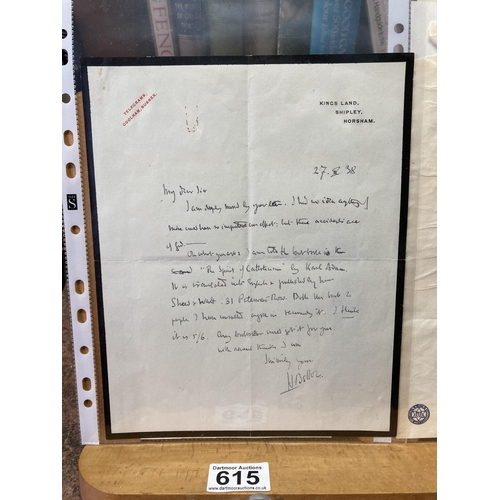 TELEGRAMS,
COOLHAM, SUSSEX.
KINGS LAND,
SHIPLEY,
HORSHAM.
27. XI 38
My dear Sir
I am deeply moved by your letter. I had no idea anything of
mine could have so important an effect: but these accidents are
of God.
the best book is the
"The Spirit of Catholicism" by Karl Adam.
It is translated into English & published by
Sheed & Ward. 31 Paternoster Row. Both the
people I have consulted agree in recommending it. I think
it is 5/6. Any bookseller would get it for you.
with renewed thanks I am
Sincerely yours
H Belloc
Dartmoor Auctions
615
www.dartmoorauctions.co.uk